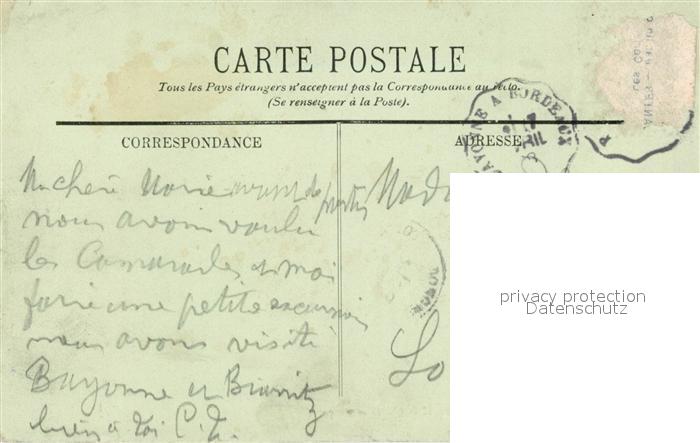 CARTE POSTALE
Tous les Pays étrangers n'acceptent pas la Correspondance au recto.
(Se renseigner à la Poste).
CORRESPONDANCE
ADRESSE
BAYONNE A BORDEAUX
Ma chère Marie avant de partir
nous avons voulu
les Camarades et moi
faire une petite excursion
nous avons visité
Bayonne et Biarritz
bien à toi
privacy protection
Datenschutz